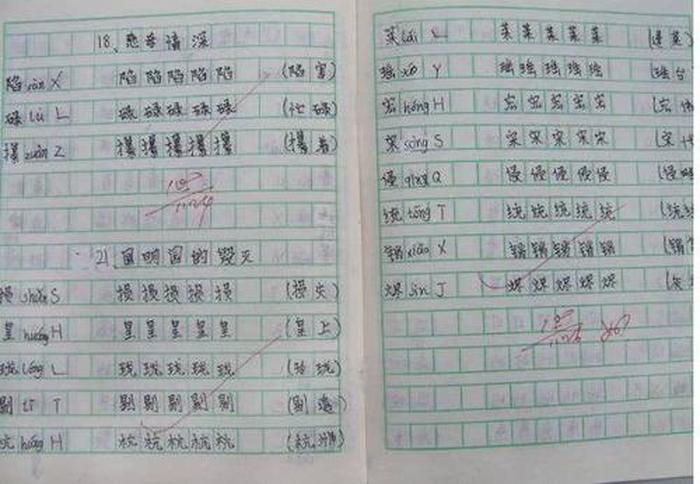 18、慈母情深
陷 xiàn X 陷陷陷陷陷 (陷害)
碌 lù L 碌碌碌碌碌 (忙碌)
攥 zuàn Z 攥攥攥攥攥 (攥着)
100
11.24
21、圆明园的毁灭
损 sǔn S 损损损损损 (损失)
皇 huáng H 皇皇皇皇皇 (皇上)
珑 lóng L 珑珑珑珑珑 (玲珑)
剔 tī T 剔剔剔剔剔 (剔透)
杭 háng H 杭杭杭杭杭 (杭州)
莱 lái L 莱莱莱莱莱 (蓬莱)
瑶 yáo Y 瑶瑶瑶瑶瑶 (瑶台
宏 hóng H 宏宏宏宏宏 (宏
宋 sòng S 宋宋宋宋宋 (宋
侵 qīng Q 侵侵侵侵侵 (侵略
统 tǒng T 统统统统统 (统
销 xiāo X 销销销销销 (销
烬 jìn J 烬烬烬烬烬 (灰
100
11.26